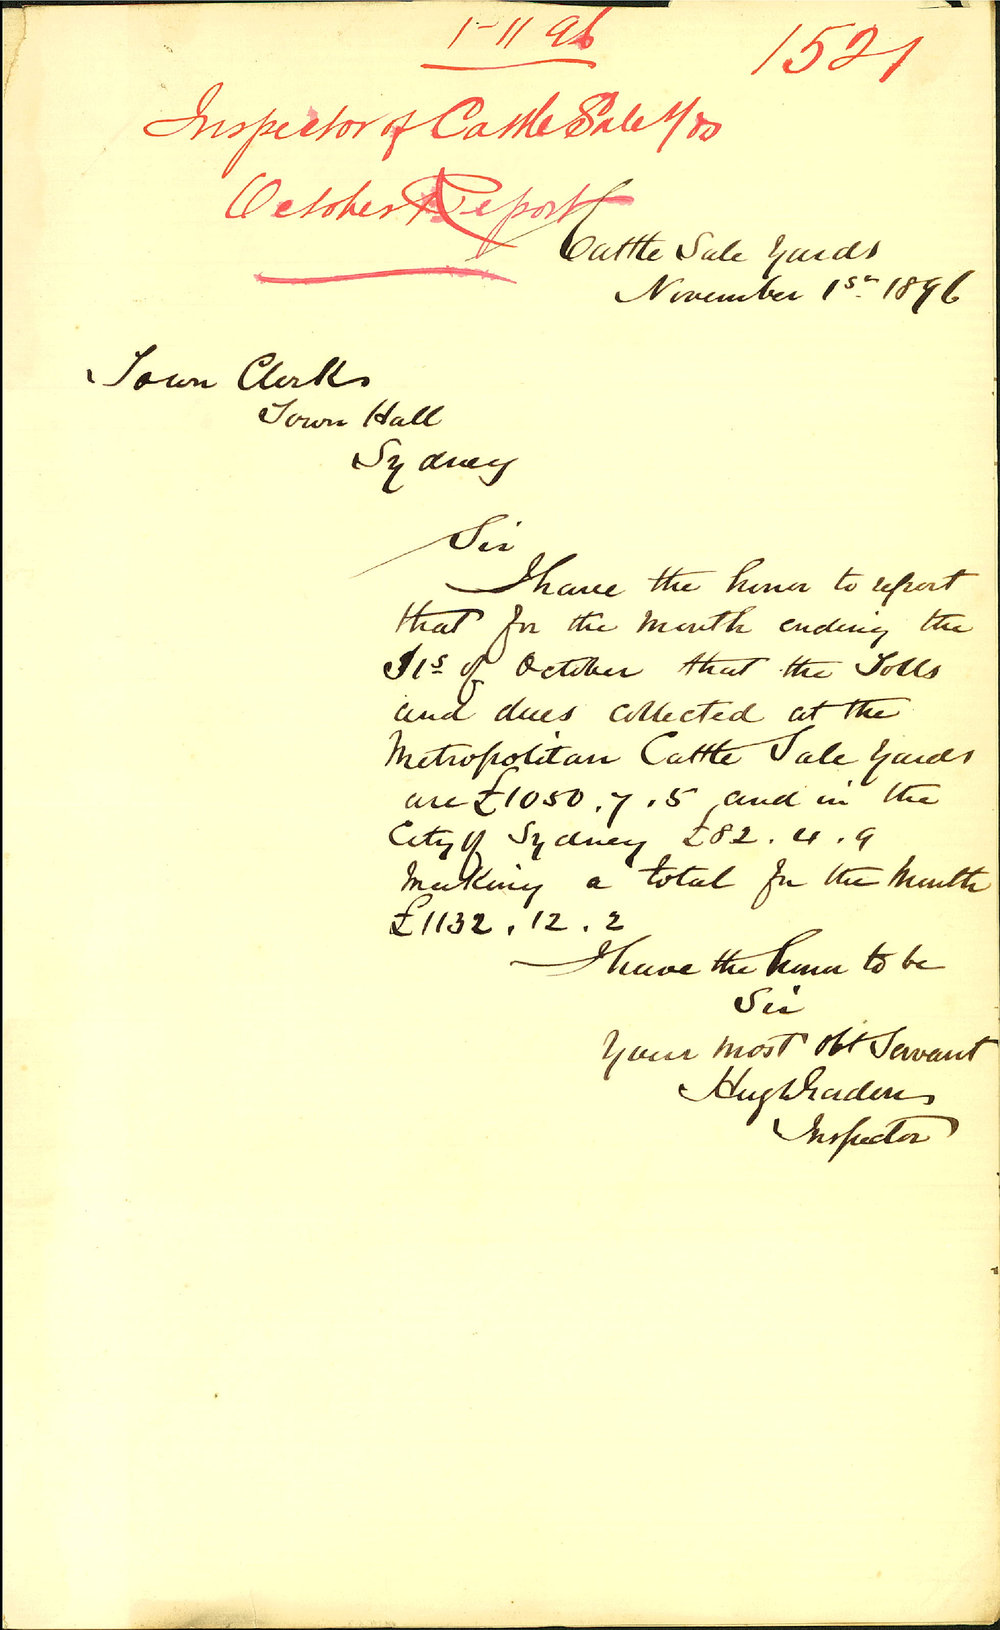 1-11 96
1521
Inspector of Cattle Sale Yds
October Report
Cattle Sale Yards
November 1st 1896
Town Clerks
Town Hall
Sydney
Sir
I have the honor to report
that for the month ending the
31s of October that the Tolls
and dues collected at the
Metropolitan Cattle Sale Yards
are £1050.7.5 and in the
City of Sydney £82.4.9
Making a total for the Month
£1132.12.2
I have the honor to be
Sir
Your most obt Servant
Hugh
Inspector